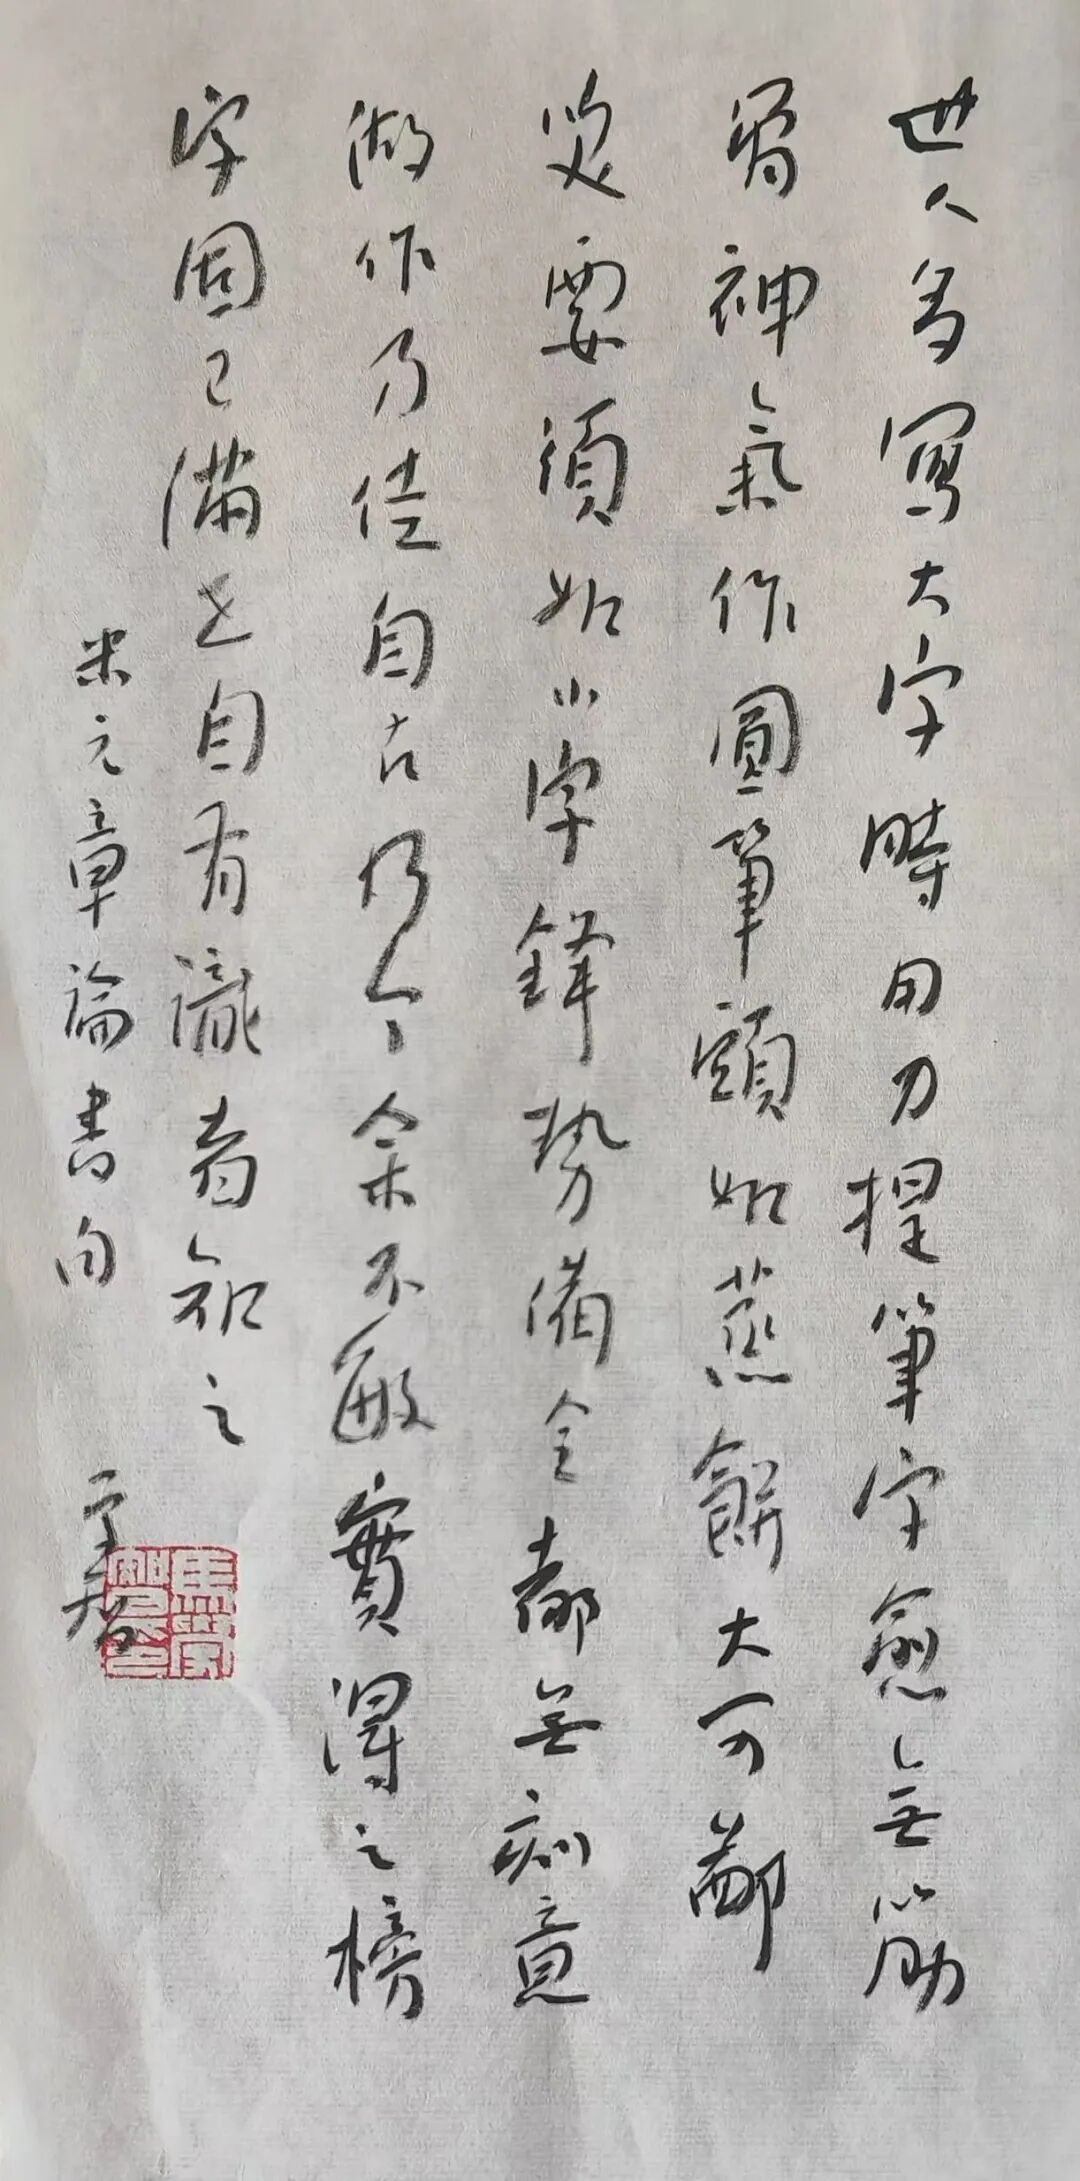 世人多寫大字時用力捏筆字愈無筋
骨神氣作圓筆頭如蒸餅大可鄙
笑要須如小字鋒勢備全都無刻意
做作乃佳自古及今余不敏實得之榜
字固已滿世自有識者知之
米元章論書句